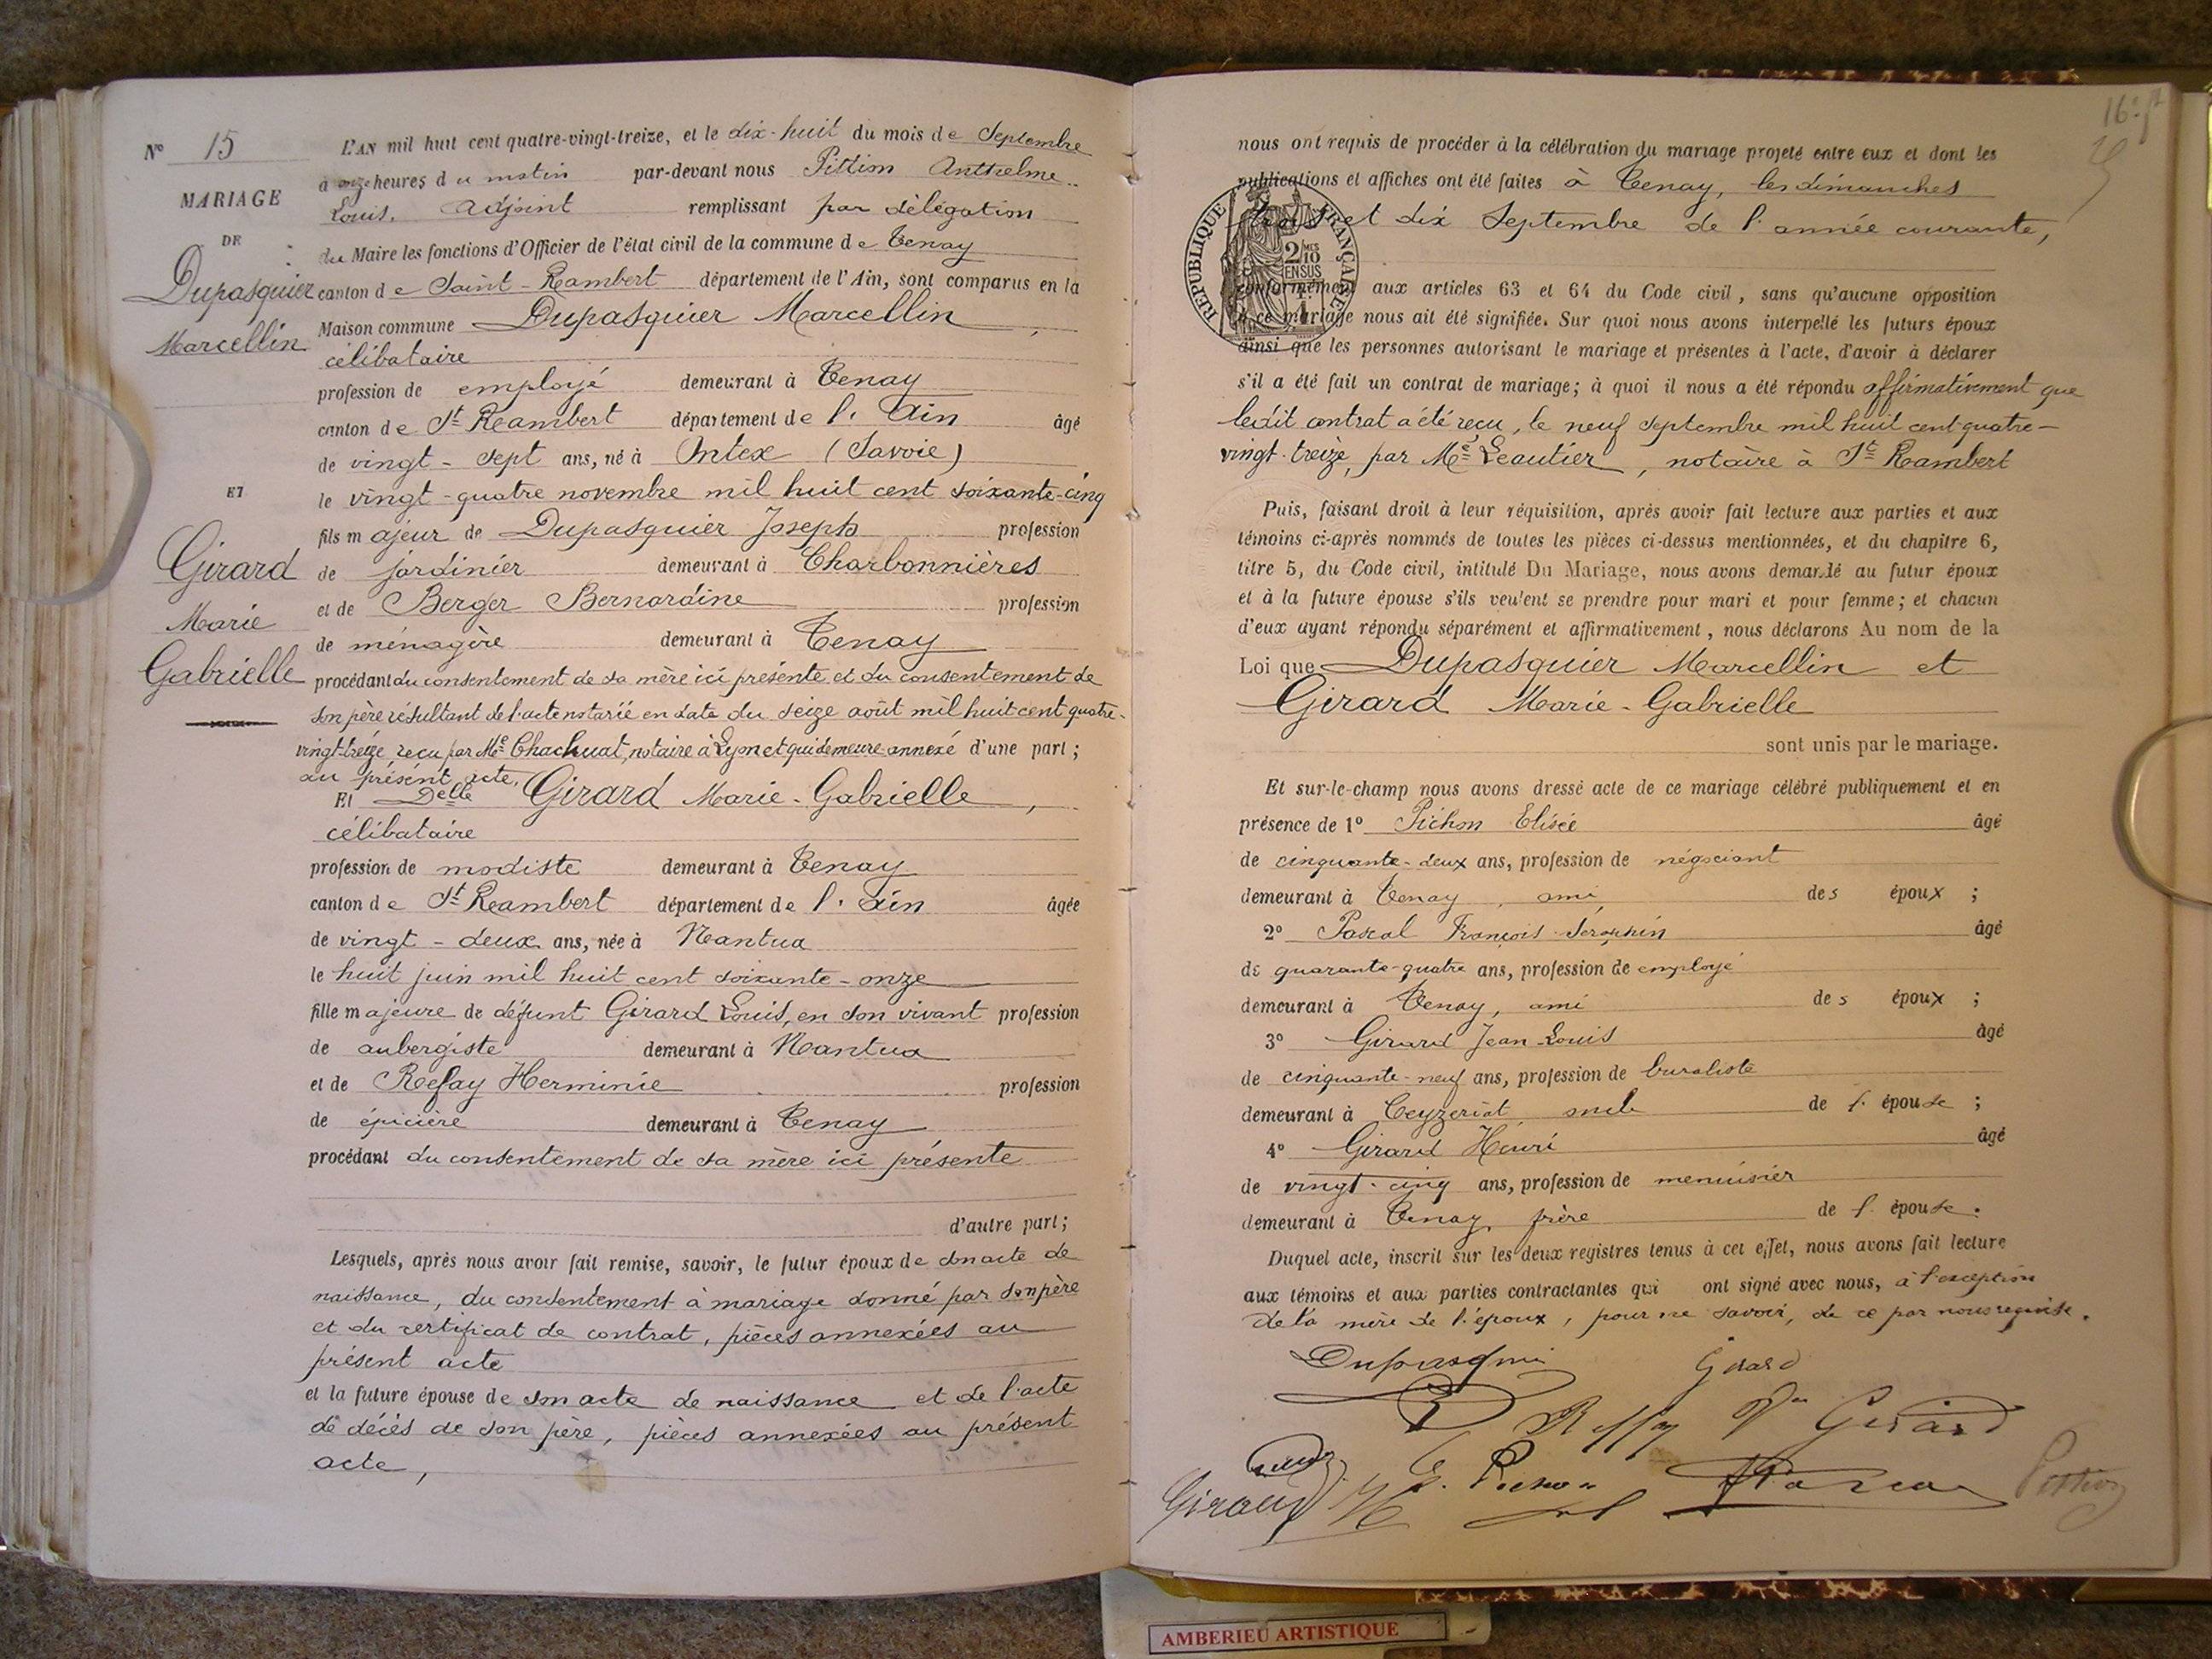 N° 15
MARIAGE
DE
Dupasquier
Marcellin
ET
Girard
Marie
Gabrielle
L'AN mil huit cent quatre-vingt-treize, et le dix-huit du mois de Septembre
à onze heures du matin par-devant nous Pittion Anthelme
Louis, Adjoint remplissant par délégation
du Maire les fonctions d'Officier de l'état civil de la commune de Tenay
canton de Saint-Rambert département de l'Ain, sont comparus en la
Maison commune Dupasquier Marcellin,
célibataire
profession de employé demeurant à Tenay
canton de St Rambert département de l'Ain âgé
de vingt-sept ans, né à Ontex (Savoie)
le vingt-quatre novembre mil huit cent soixante-cinq
fils majeur de Dupasquier Joseph profession
de jardinier demeurant à Charbonnières
et de Berger Bernardine profession
de ménagère demeurant à Tenay
procédant du consentement de sa mère ici présente et du consentement de
son père résultant de l'acte notarié en date du seize août mil huit cent quatre-
vingt-treize, reçu par Me Chachuat, notaire à Lyon et qui demeure annexé d'une part;
au présent acte,
Et Delle Girard Marie-Gabrielle,
célibataire
profession de modiste demeurant à Tenay
canton de St Rambert département de l'Ain âgée
de vingt-deux ans, née à Nantua
le huit juin mil huit cent soixante-onze
fille majeure de défunt Girard Louis, en son vivant profession
de aubergiste demeurant à Nantua
et de Refay Herminie profession
de épicière demeurant à Tenay
procédant du consentement de sa mère ici présente
d'autre part;
Lesquels, après nous avoir fait remise, savoir, le futur époux de son acte de
naissance, du consentement à mariage donné par son père
et du certificat de contrat, pièces annexées au
présent acte
et la future épouse de son acte de naissance et de l'acte
de décès de son père, pièces annexées au présent
acte,
16
nous ont requis de procéder à la célébration du mariage projeté entre eux et dont les
publications et affiches ont été faites à Tenay, les dimanches
trois et dix Septembre de l'année courante,
RÉPUBLIQUE FRANÇAISE
2/10 MES
EN SUS
conformément aux articles 63 et 64 du Code civil, sans qu'aucune opposition
à ce mariage nous ait été signifiée. Sur quoi nous avons interpellé les futurs époux
ainsi que les personnes autorisant le mariage et présentes à l'acte, d'avoir à déclarer
s'il a été fait un contrat de mariage; à quoi il nous a été répondu affirmativement que
ledit contrat a été reçu, le neuf septembre mil huit cent quatre-
vingt-treize, par Me Leautier, notaire à St Rambert
Puis, faisant droit à leur réquisition, après avoir fait lecture aux parties et aux
témoins ci-après nommés de toutes les pièces ci-dessus mentionnées, et du chapitre 6,
titre 5, du Code civil, intitulé Du Mariage, nous avons demandé au futur époux
et à la future épouse s'ils veulent se prendre pour mari et pour femme; et chacun
d'eux ayant répondu séparément et affirmativement, nous déclarons Au nom de la
Loi que Dupasquier Marcellin et
Girard Marie-Gabrielle
sont unis par le mariage.
Et sur-le-champ nous avons dressé acte de ce mariage célébré publiquement et en
présence de 1° Pichon Elisée âgé
de cinquante-deux ans, profession de négociant
demeurant à Tenay, ami des époux;
2° Pascal François-Séraphin âgé
de quarante-quatre ans, profession de employé
demeurant à Tenay, ami des époux;
3° Girard Jean Louis âgé
de cinquante-neuf ans, profession de buraliste
demeurant à Ceyzeriat oncle de l'épouse;
4° Girard Henri âgé
de vingt-cinq ans, profession de menuisier
demeurant à Tenay, frère de l'épouse.
Duquel acte, inscrit sur les deux registres tenus à cet effet, nous avons fait lecture
aux témoins et aux parties contractantes qui ont signé avec nous, à l'exception
de la mère de l'époux, pour ne savoir, de ce par nous requise.
Dupasquier Girard
Reffay Vve Girard
Girard E. Pichon Pascal Pittion
AMBERIEU ARTISTIQUE